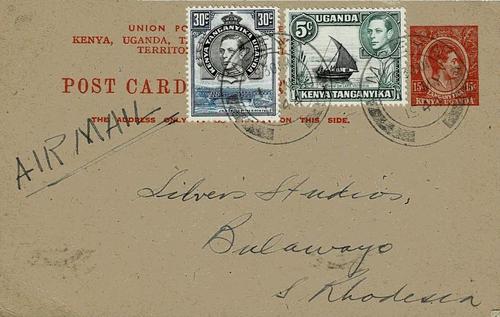 UNION PO
KENYA, UGANDA, T
TERRITO
POST CARD
THE ADDRESS ONLY ON THIS SIDE.
30c 30c
KENYA TANGANYIKA UGANDA
UGANDA
5c
KENYA TANGANYIKA
15c 15c
TANGANYIKA
KENYA UGANDA
AIR MAIL
Silver's Studios,
Bulawayo
S Rhodesia